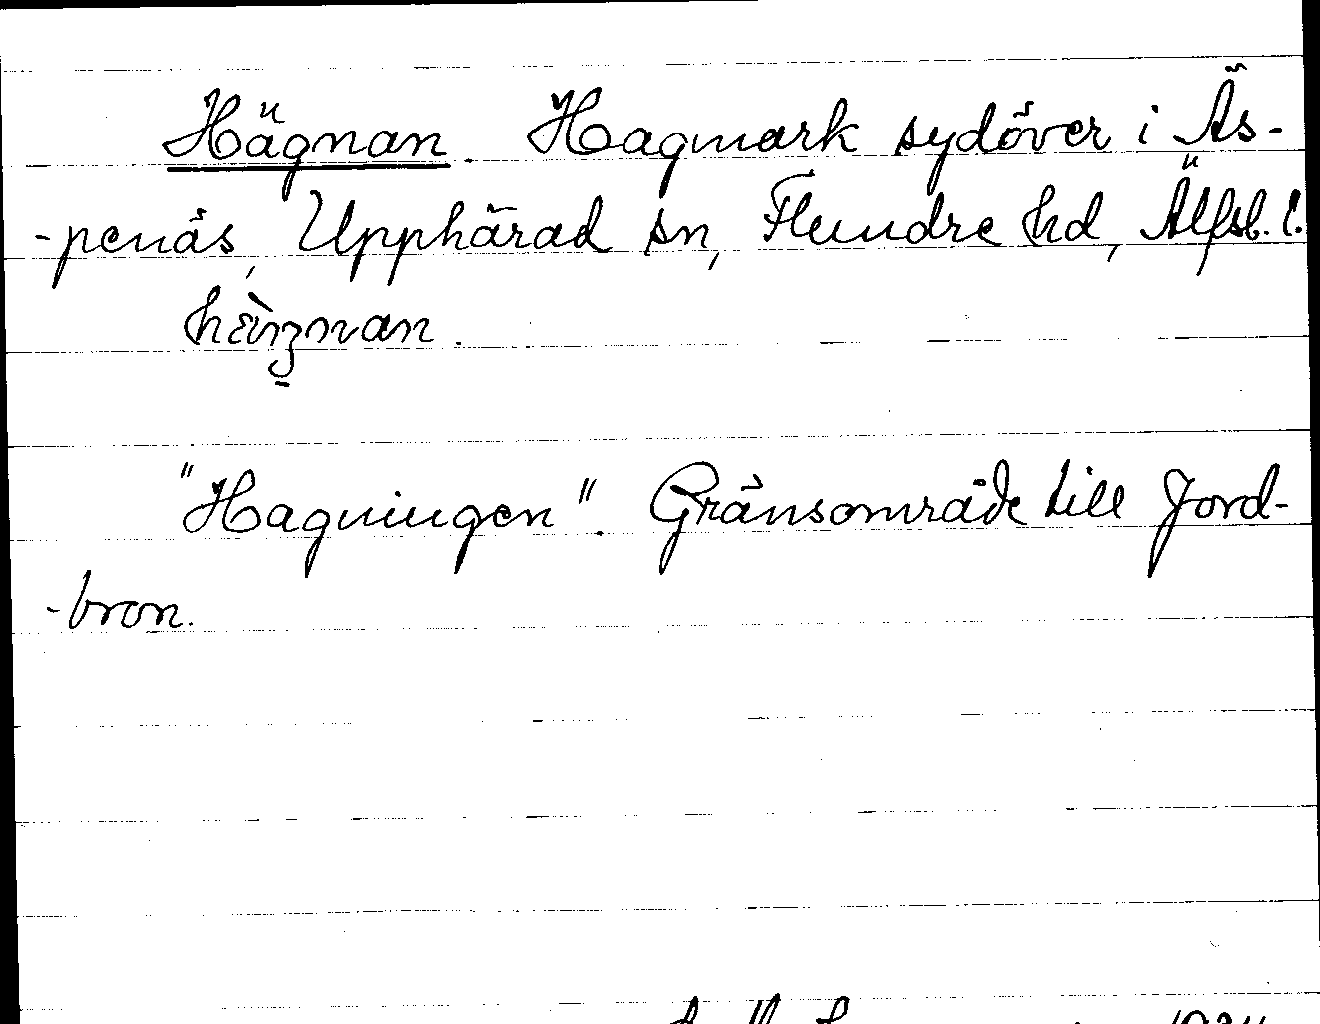 Hägnan. Hagmark sydöver i Äs-
-penäs, Upphärad sn, Flundre hd, Älfsb. l.
"Hagningen". Gränsområde till Jord-
-bron.